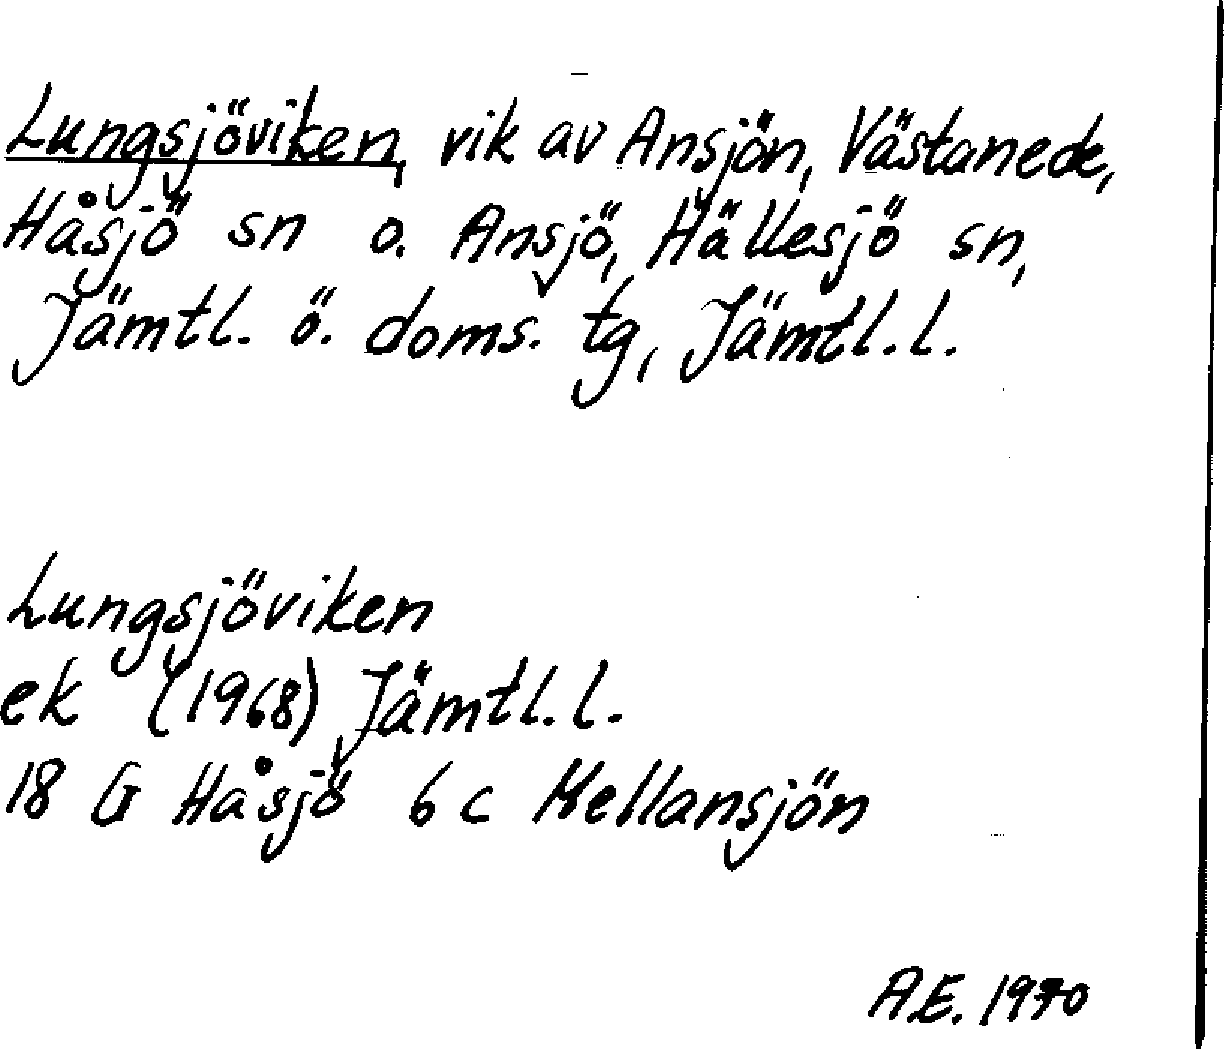 Lungsjöviken, vik av Ansjön, Västanede,
Håsjö sn o. Ansjö, Hällesjö sn,
Jämtl. ö. doms. tg, Jämtl. l.
Lungsjöviken
ek (1968) Jämtl. l.
18 G Håsjö 6 c Mellansjön
A.E. 1970